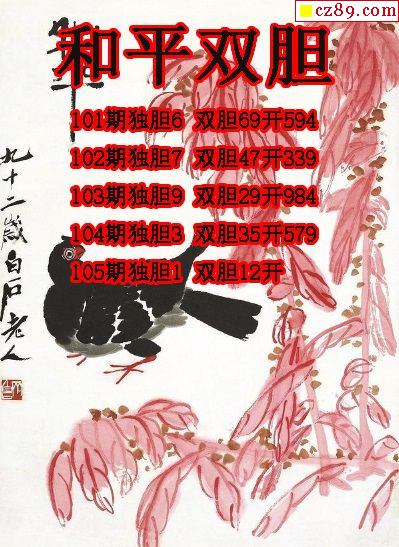 cz89.com
和平
和平双胆
101期独胆6 双胆69开594
102期独胆7 双胆47开339
103期独胆9 双胆29开984
104期独胆3 双胆35开579
105期独胆1 双胆12开
九十二岁白石老人